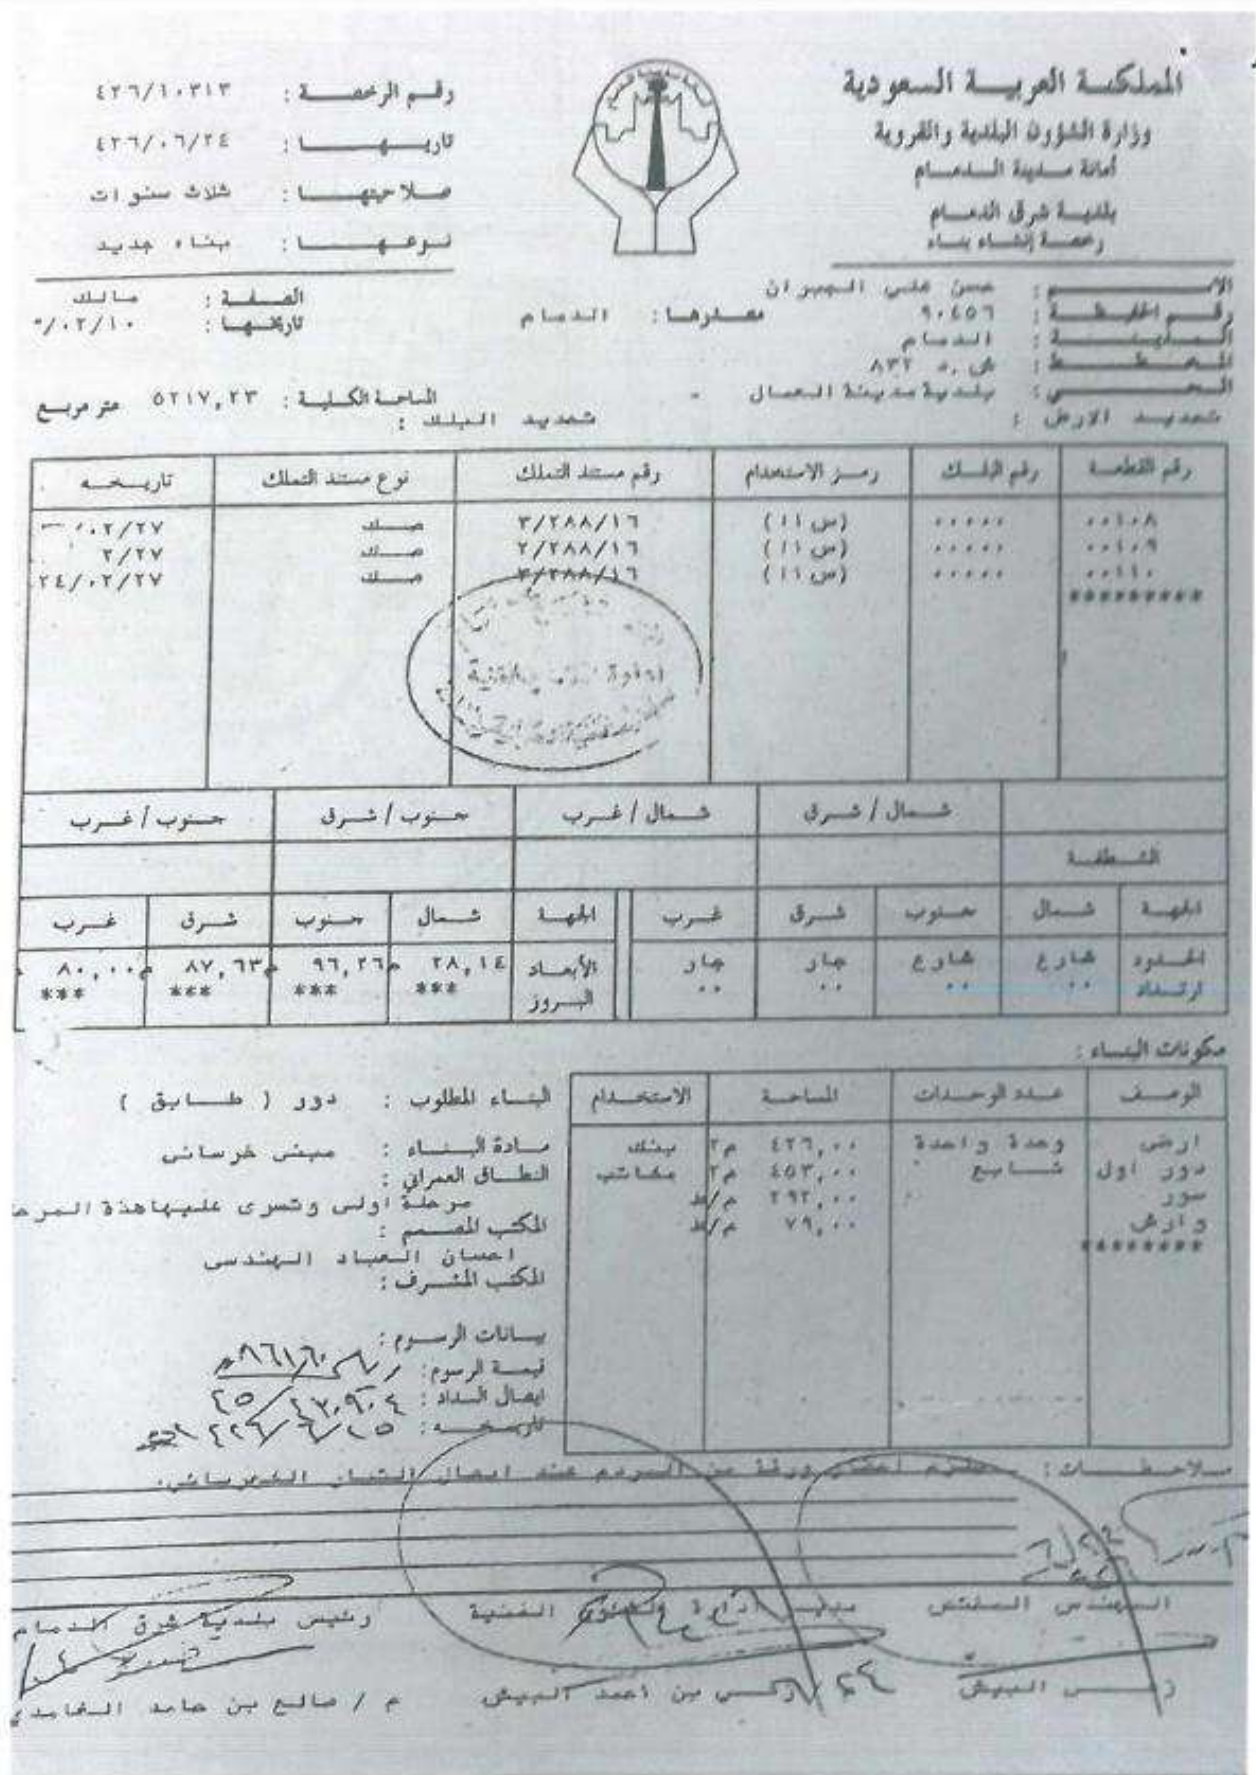 المملكة العربية السعودية
وزارة الشؤون البلدية والقروية
أمانة مدينة الدمام
بلدية شرق الدمام
رخصة إنشاء بناء
رقم الرخصة : ٤٢٦/١٠٣١٣
تاريخها : ٤٢٦/٠٦/٢٤
صلاحيتها : ثلاث سنوات
نوعها : بناء جديد
الاسم : حسن علي الجبران
الصفة : مالك
رقم الحفيظة : ٩٠٤٥٦ مصدرها : الدمام تاريخها : ٠٢/١٠/
المدينة : الدمام
المخطط : ش.د ٨٣٢
الحي : بلدية مدينة العمال - المساحة الكلية : ٥٢١٧,٢٣ متر مربع
تحديد الارض : تحديد البلك :
رقم القطعة رقم البلك رمز الاستخدام رقم مستند التملك نوع مستند التملك تاريخه
٠٠١٠٨ ٠٠٠٠٠ (س ١١) ٣/٢٨٨/١٦ صك ٠٢/٢٧/
٠٠١٠٩ ٠٠٠٠٠ (س ١١) ٢/٢٨٨/١٦ صك ٢/٢٧
٠٠١١٠ ٠٠٠٠٠ (س ١١) ٣/٢٨٨/١٦ صك ٢٤/٠٢/٢٧
*********
شمال / شرق شمال / غرب جنوب / شرق جنوب / غرب
الشطفة
الجهة شمال جنوب شرق غرب الجهة شمال جنوب شرق غرب
الحدود شارع شارع جار جار الأبعاد ٢٨,١٤ م ٩٦,٢٦ م ٨٧,٦٣ م ٨٠,٠٠
ارتداد ٠٠ ٠٠ ٠٠ ٠٠ البروز *** *** *** ***
مكونات البناء :
الوصف عدد الوحدات المساحة الاستخدام
ارضي وحدة واحدة ٤٢٦,٠٠ م٢ بنك
دور اول شايع ٤٥٣,٠٠ م٢ مكاتب
سور ٢٩٢,٠٠ م/ط
وارش ٧٩,٠٠ م/ط
********
البناء المطلوب : دور ( طابق )
مادة البناء : مبنى خرسانى
النطاق العمراني :
مرحلة اولى وتسرى عليها هذة المرح
المكتب المصمم :
احسان العباد الهندسى
المكتب المشرف :
بيانات الرسوم :
قيمة الرسوم :
ايصال السداد :
تاريخه :
ملاحظات : يلتزم احضار ورقة من المردم عند ايصال التيار الكهربائى.
المهندس المختص مدير ادارة الشئون الفنية رئيس بلدية شرق الدمام
البيش بن أحمد البيش م / صالح بن حامد الغامدي